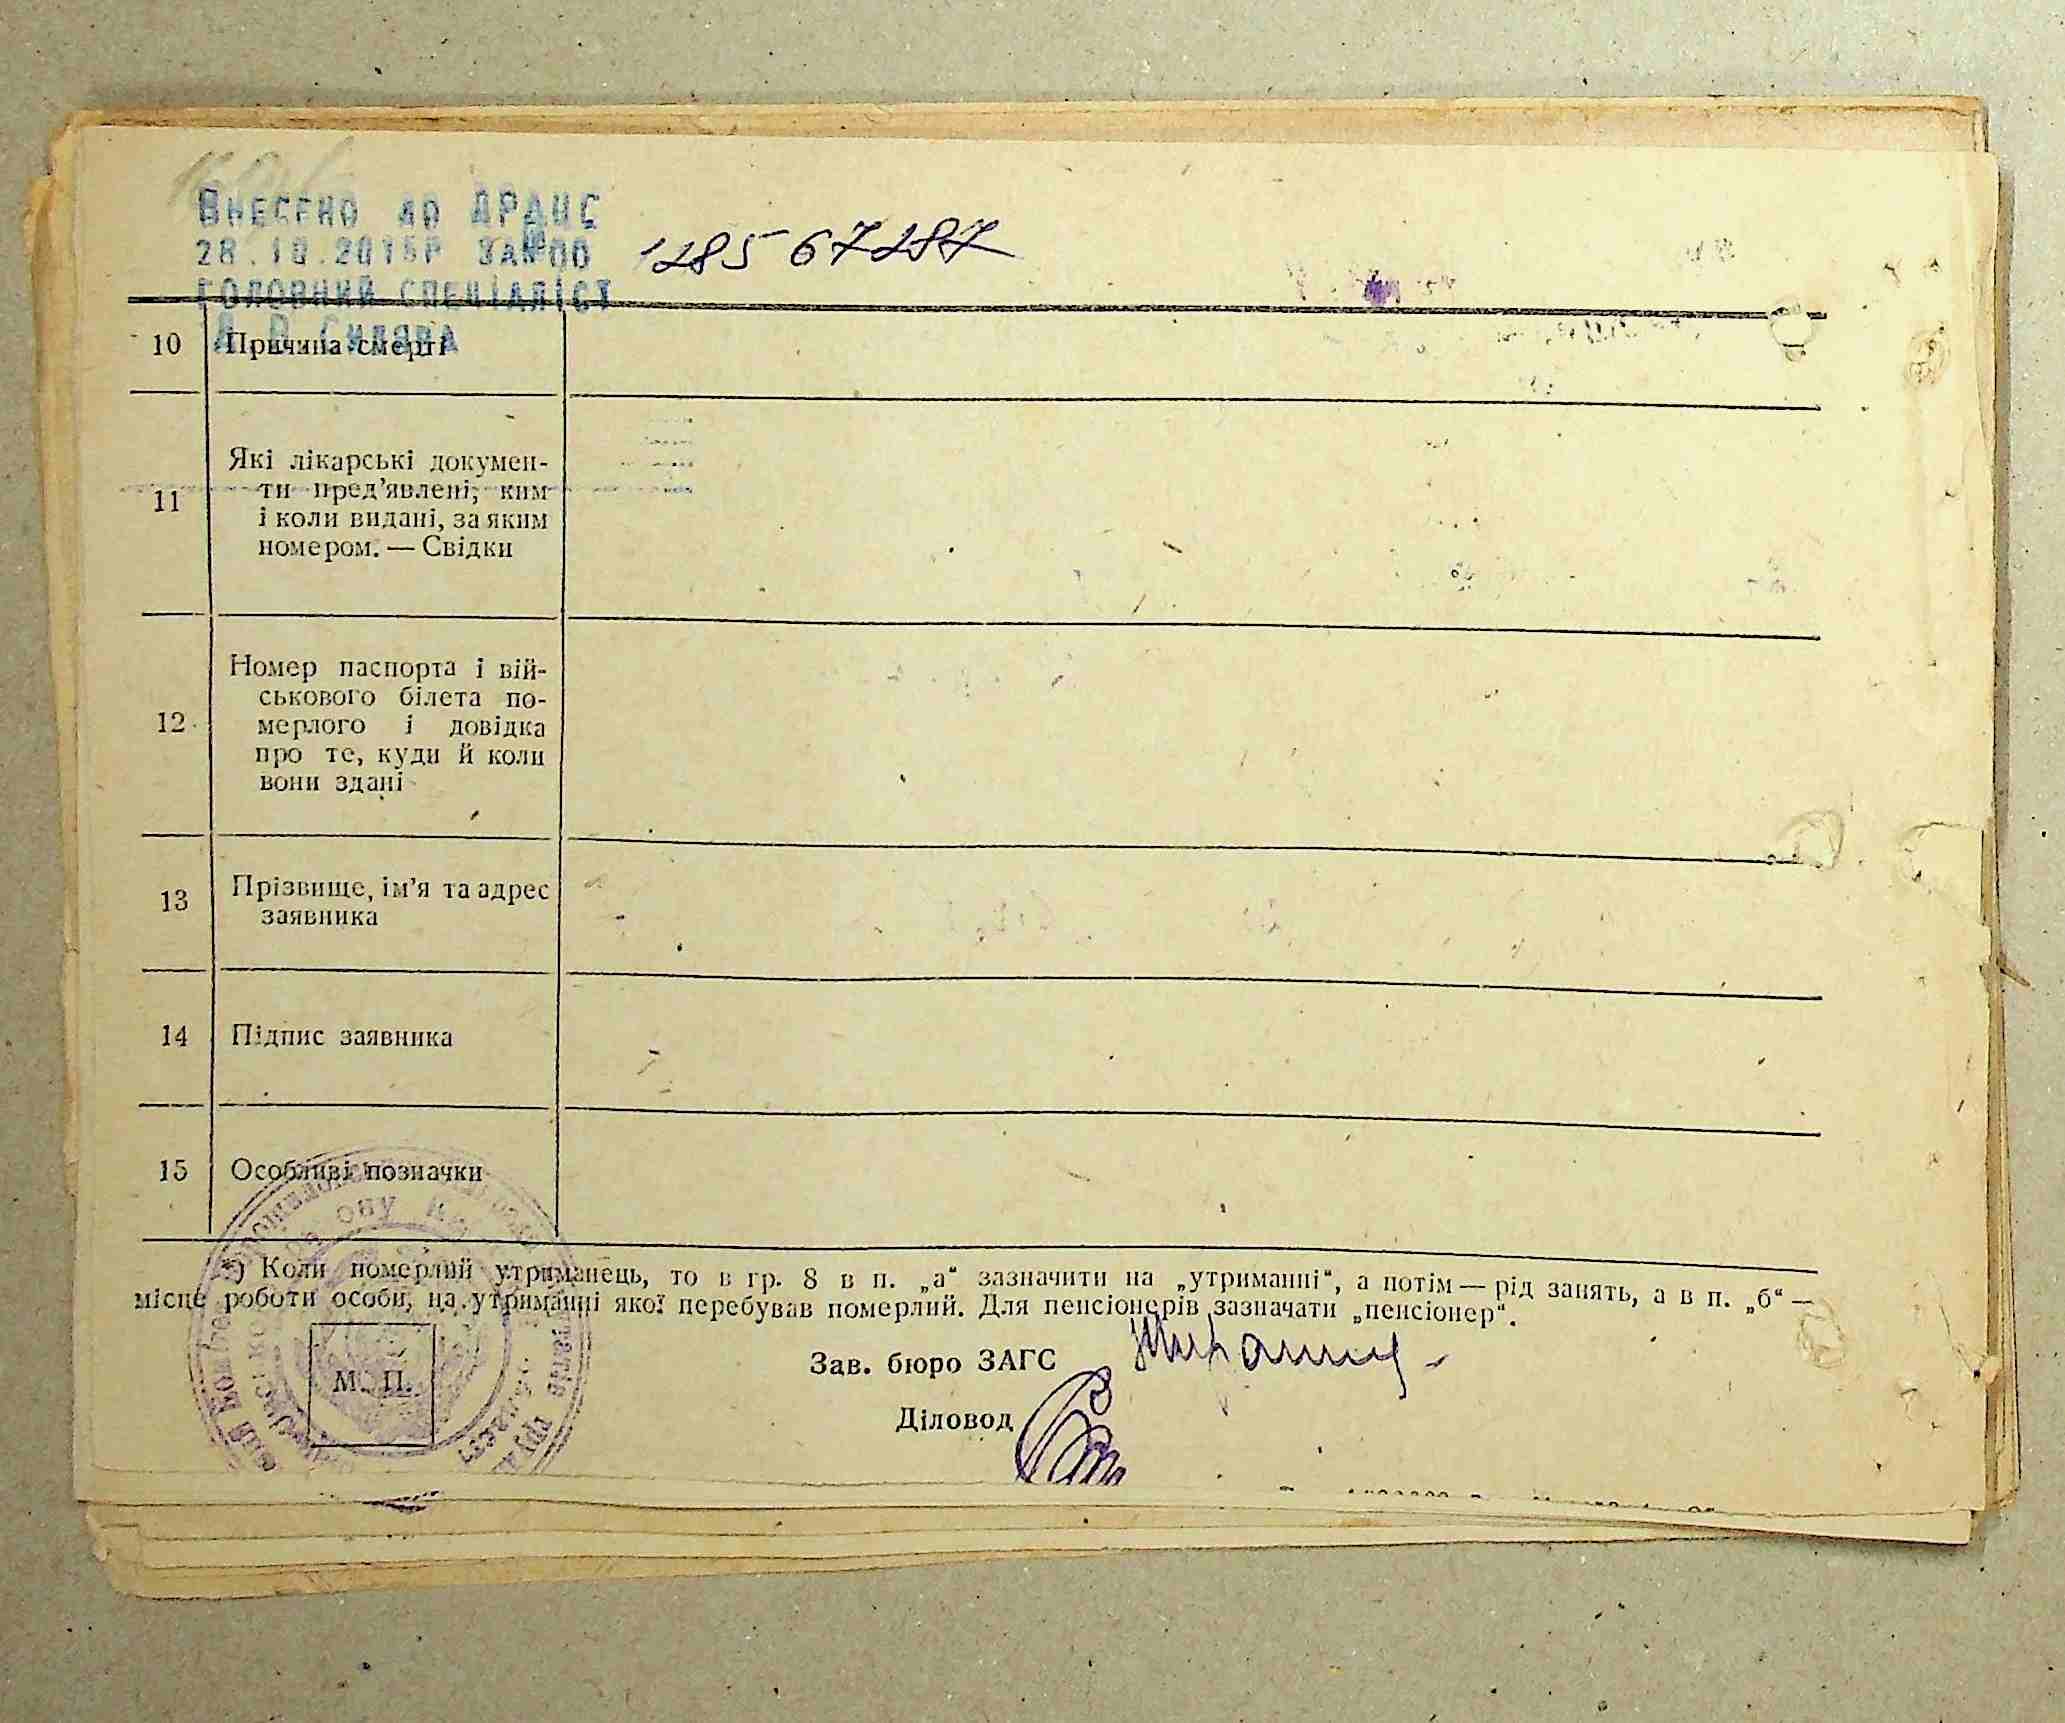 ВНЕСЕНО ДО ДРАЦС
28.10.2015Р ЗА №00 12856 67287
ГОЛОВНИЙ СПЕЦІАЛІСТ
10 Причина смерті
11 Які лікарські докумен-
ти пред’явлені, ким
і коли видані, за яким
номером. — Свідки
12 Номер паспорта і вій-
ськового білета по-
мерлого і довідка
про те, куди й коли
вони здані
13 Прізвище, ім’я та адрес
заявника
14 Підпис заявника
15 Особливі позначки
*) Коли померлий утриманець, то в гр. 8 в п. „а“ зазначити на „утриманні“, а потім — рід занять, а в п. „б“ —
місце роботи особи, на утриманні якої перебував померлий. Для пенсіонерів зазначати „пенсіонер“.
Зав. бюро ЗАГС
М. П.
Діловод